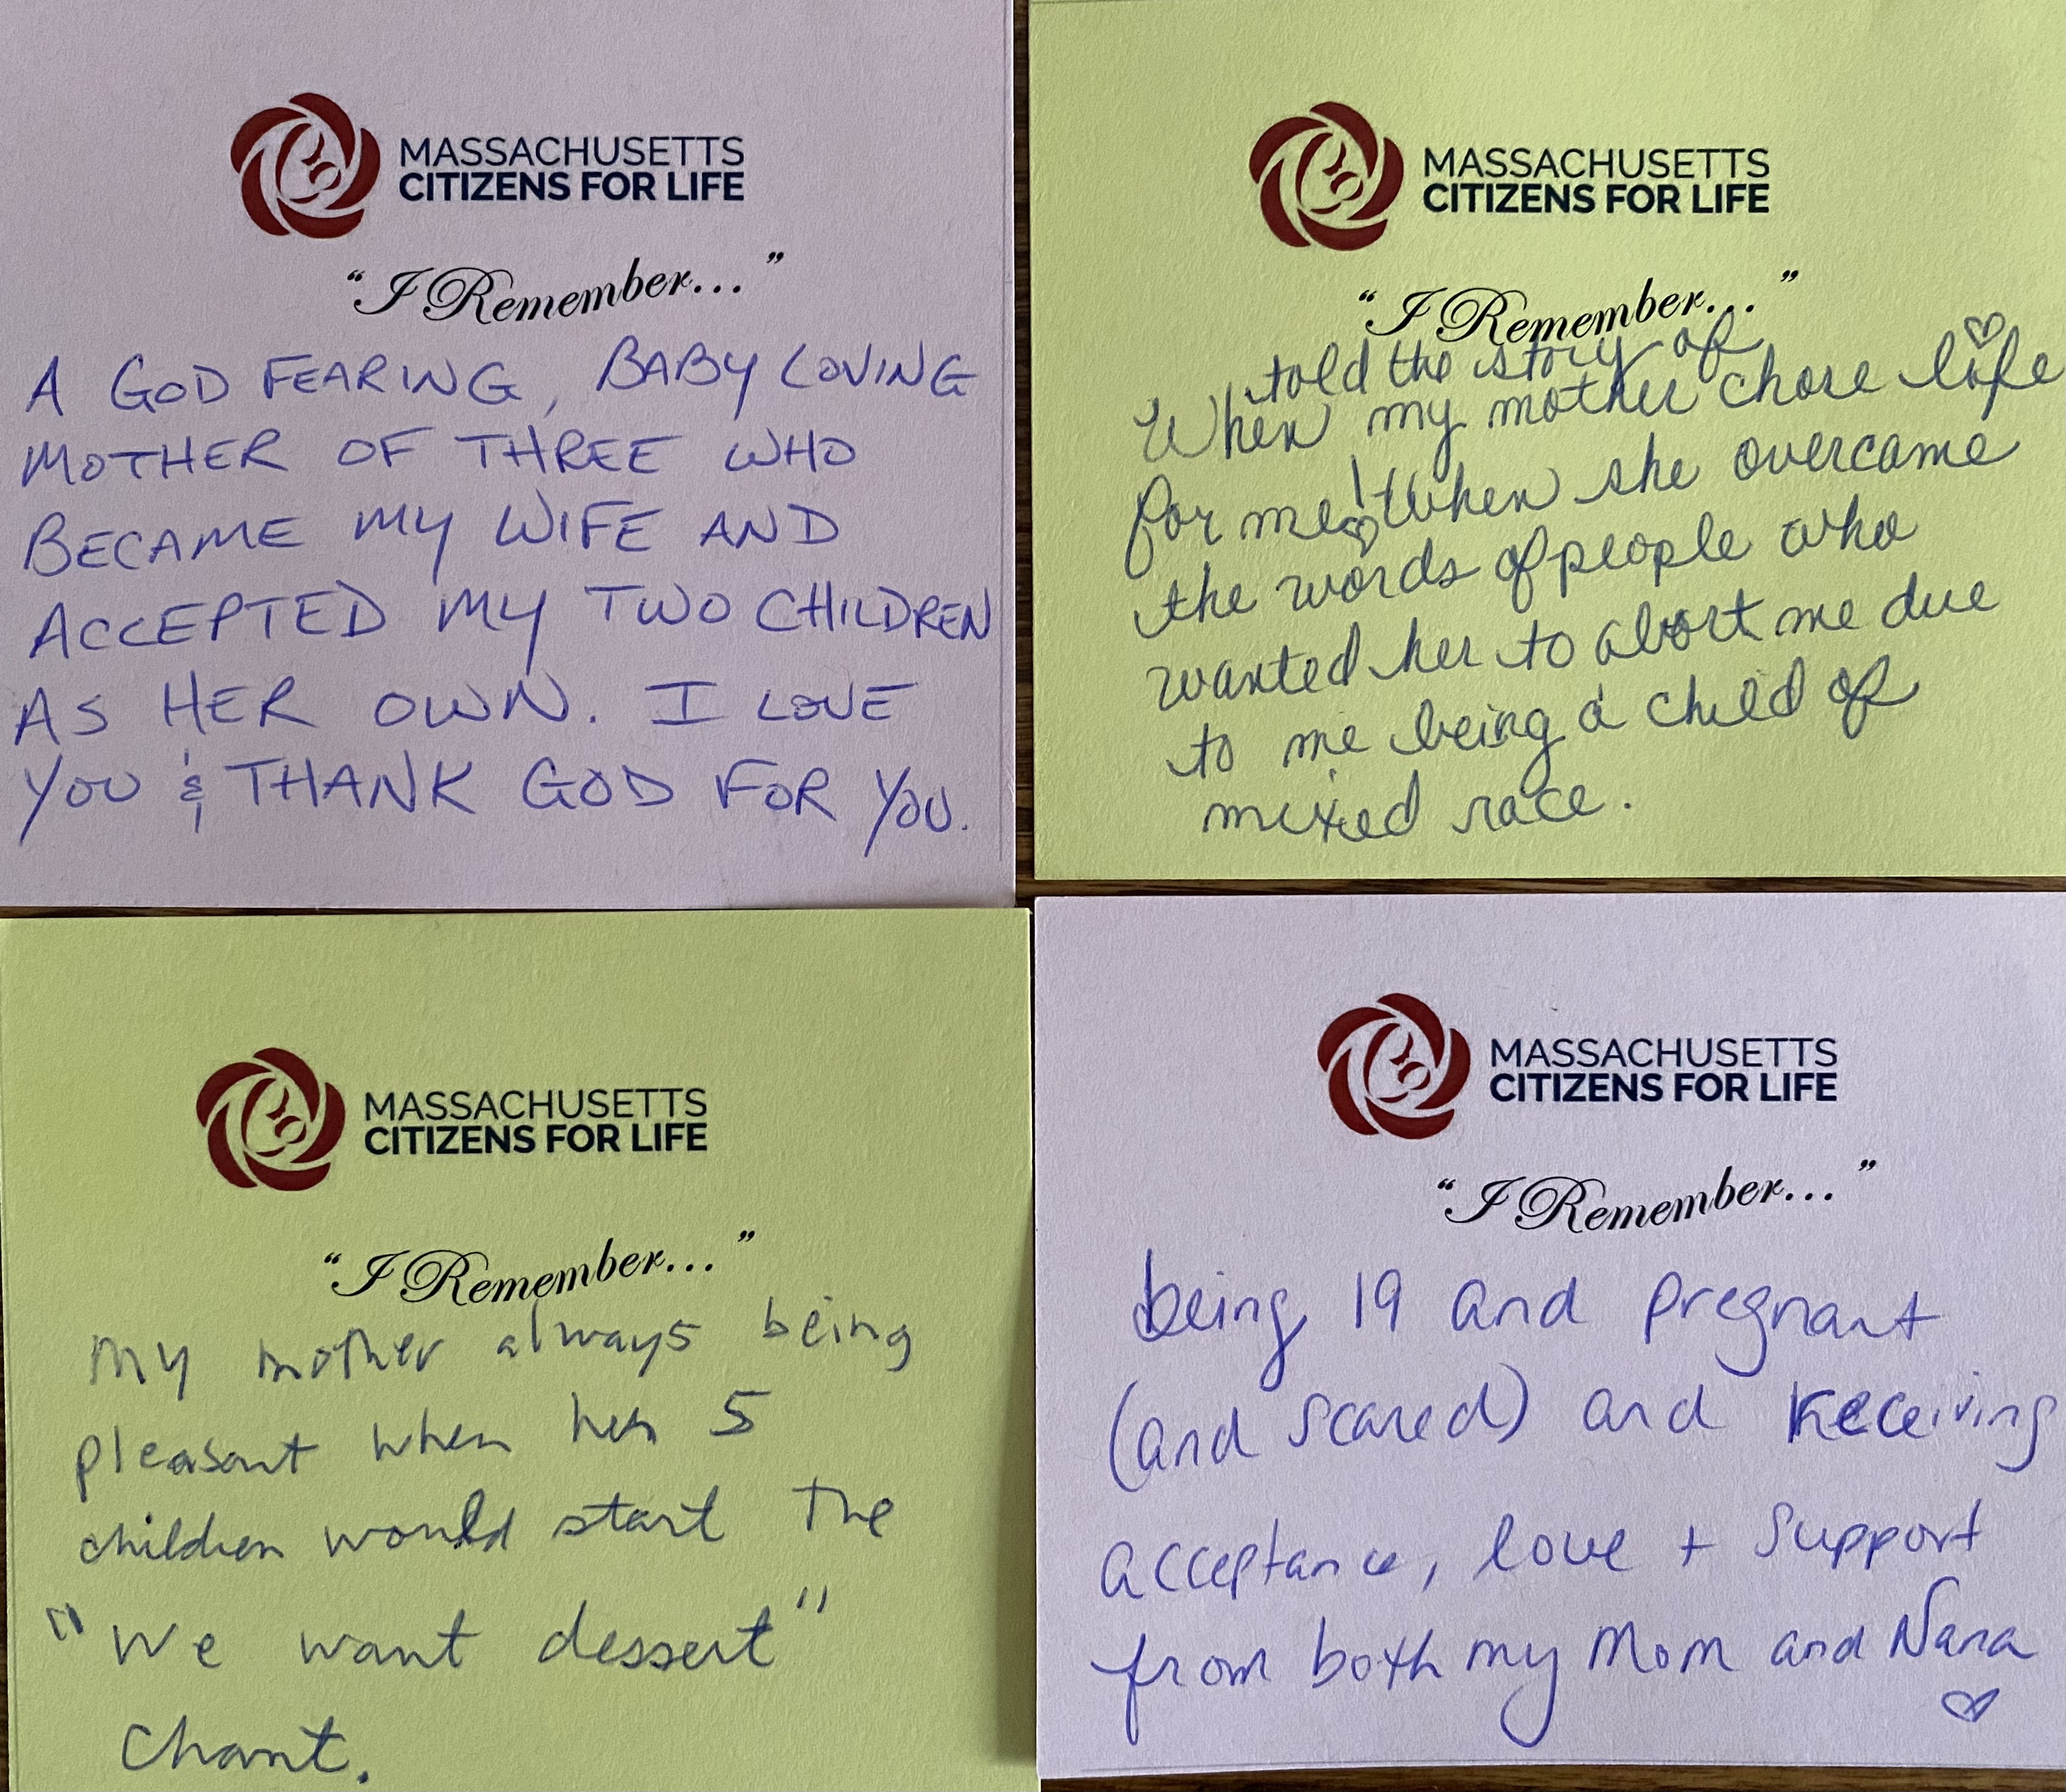 MASSACHUSETTS
CITIZENS FOR LIFE
"I Remember..."
A GOD FEARING, BABY LOVING
MOTHER OF THREE WHO
BECAME MY WIFE AND
ACCEPTED MY TWO CHILDREN
AS HER OWN. I LOVE
YOU & THANK GOD FOR YOU.
MASSACHUSETTS
CITIZENS FOR LIFE
"I Remember..."
told the story of
When my mother chose life
for me! When she overcame
the words of people who
wanted her to abort me due
to me being a child of
mixed race.
MASSACHUSETTS
CITIZENS FOR LIFE
"I Remember..."
My mother always being
pleasant when her 5
children would start the
"We want dessert"
chant.
MASSACHUSETTS
CITIZENS FOR LIFE
"I Remember..."
being 19 and pregnant
(and scared) and receiving
acceptance, love + support
from both my Mom and Nana